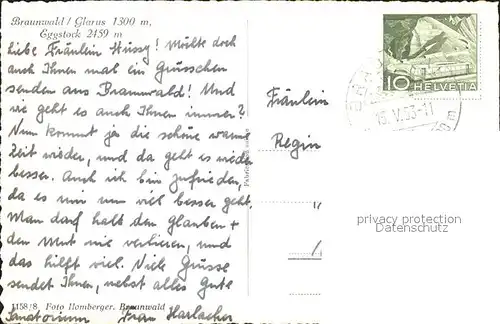 Braunwald / Glarus 1300 m,
Eggstock 2459 m
liebe Fräulein Hüssy! Möchte doch
auch Ihnen mal ein Grüsschen
senden aus Braunwald! Und
wie geht es auch Ihnen immer?
Nun kommt ja die schöne warme
Zeit wieder, und da geht es wieder
besser. Auch ich bin zufrieden,
da es mir um viel besser geht.
Man darf halt den Glauben +
den Mut nie verlieren, und
das hilft viel. Viele Grüsse
sendet Ihnen, nebst alles Gute
Frau Harlacher
Sanatorium
11589/8 Foto Homberger, Braunwald
10 HELVETIA
15.V.53-11
Fräulein
Regin
privacy protection
Datenschutz